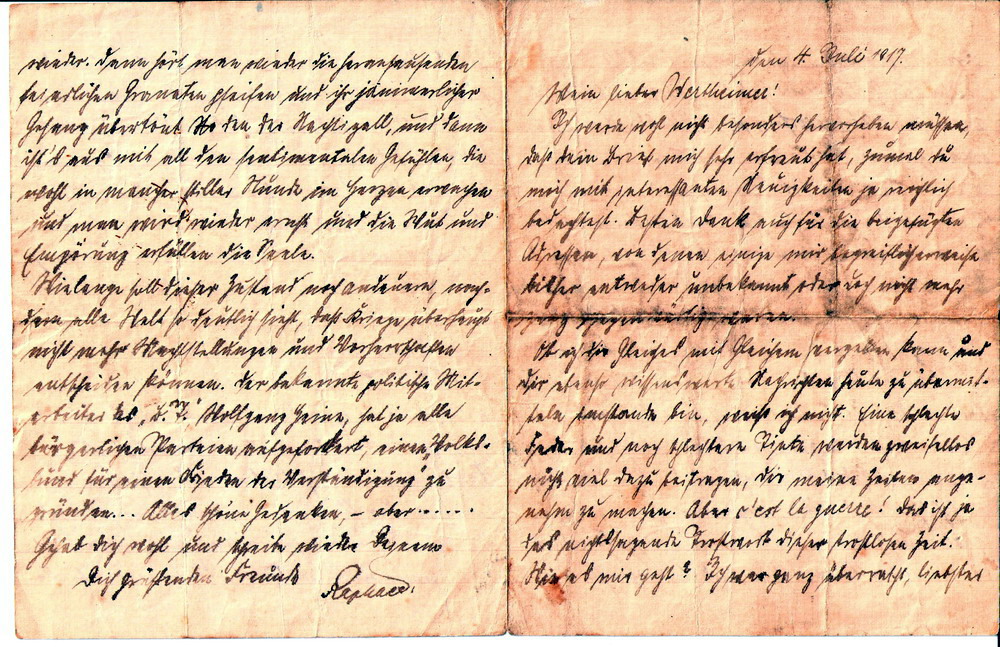 wieder. Dann hört man wieder die heransausenden
feierlichen Granaten pfeifen und ihr jämmerlicher
Gesang übertönt den der Nachtigall, und dann
ist's aus mit all den sentimentalen Gefühlen, die
wohl in mancher stiller Stunde im Herzen erwachen
und man wird wieder ernst und die Wut und
Empörung erfüllen die Seele.
Wielange soll dieser Zustand noch andauern, nach-
dem alle Welt so deutlich sieht, daß Kriege überhaupt
nicht mehr Machtstellungen und Vorherrschaften
entscheiden können. Der bekannte politische Mit-
arbeiter des „B. T." Wolfgang Heine, hat ja alle
bürgerlichen Parteien aufgefordert, einen „Volks-
bund für einen Frieden der Verständigung" zu
gründen... Alles schöne Gedanken, – aber......
Gehab dich wohl und schreibe wieder Deinem
Dich grüßenden Freunde
Raphael.
den 4. Juli 1917.
Mein lieber Wertheimer!
Ich werde wohl nicht besonders hervorheben müssen,
daß dein Brief mich sehr erfreut hat, zumal du
mich mit interessanten Neuigkeiten ja reichlich
bedachtest. Besten Dank auch für die beigefügten
Adressen, von denen einige mir begreiflicherweise
bisher entweder unbekannt oder doch nicht mehr
ganz gegenwärtig waren.
Ob ich dir Gleiches mit Gleichem vergeben kann und
dir ebenso wissenswerte Nachrichten heute zu übermit-
teln imstande bin, weiß ich nicht. Eine schlechte
Feder und noch schlechtere Tinte werden zweifellos
nicht viel dazu beitragen, dir meine Zeilen ange-
nehm zu machen. Aber c'est la guerre! Das ist ja
das nichtssagende Trostwort dieser trostlosen Zeit.
Wie es mir geht? Ich war ganz überrascht, liebster